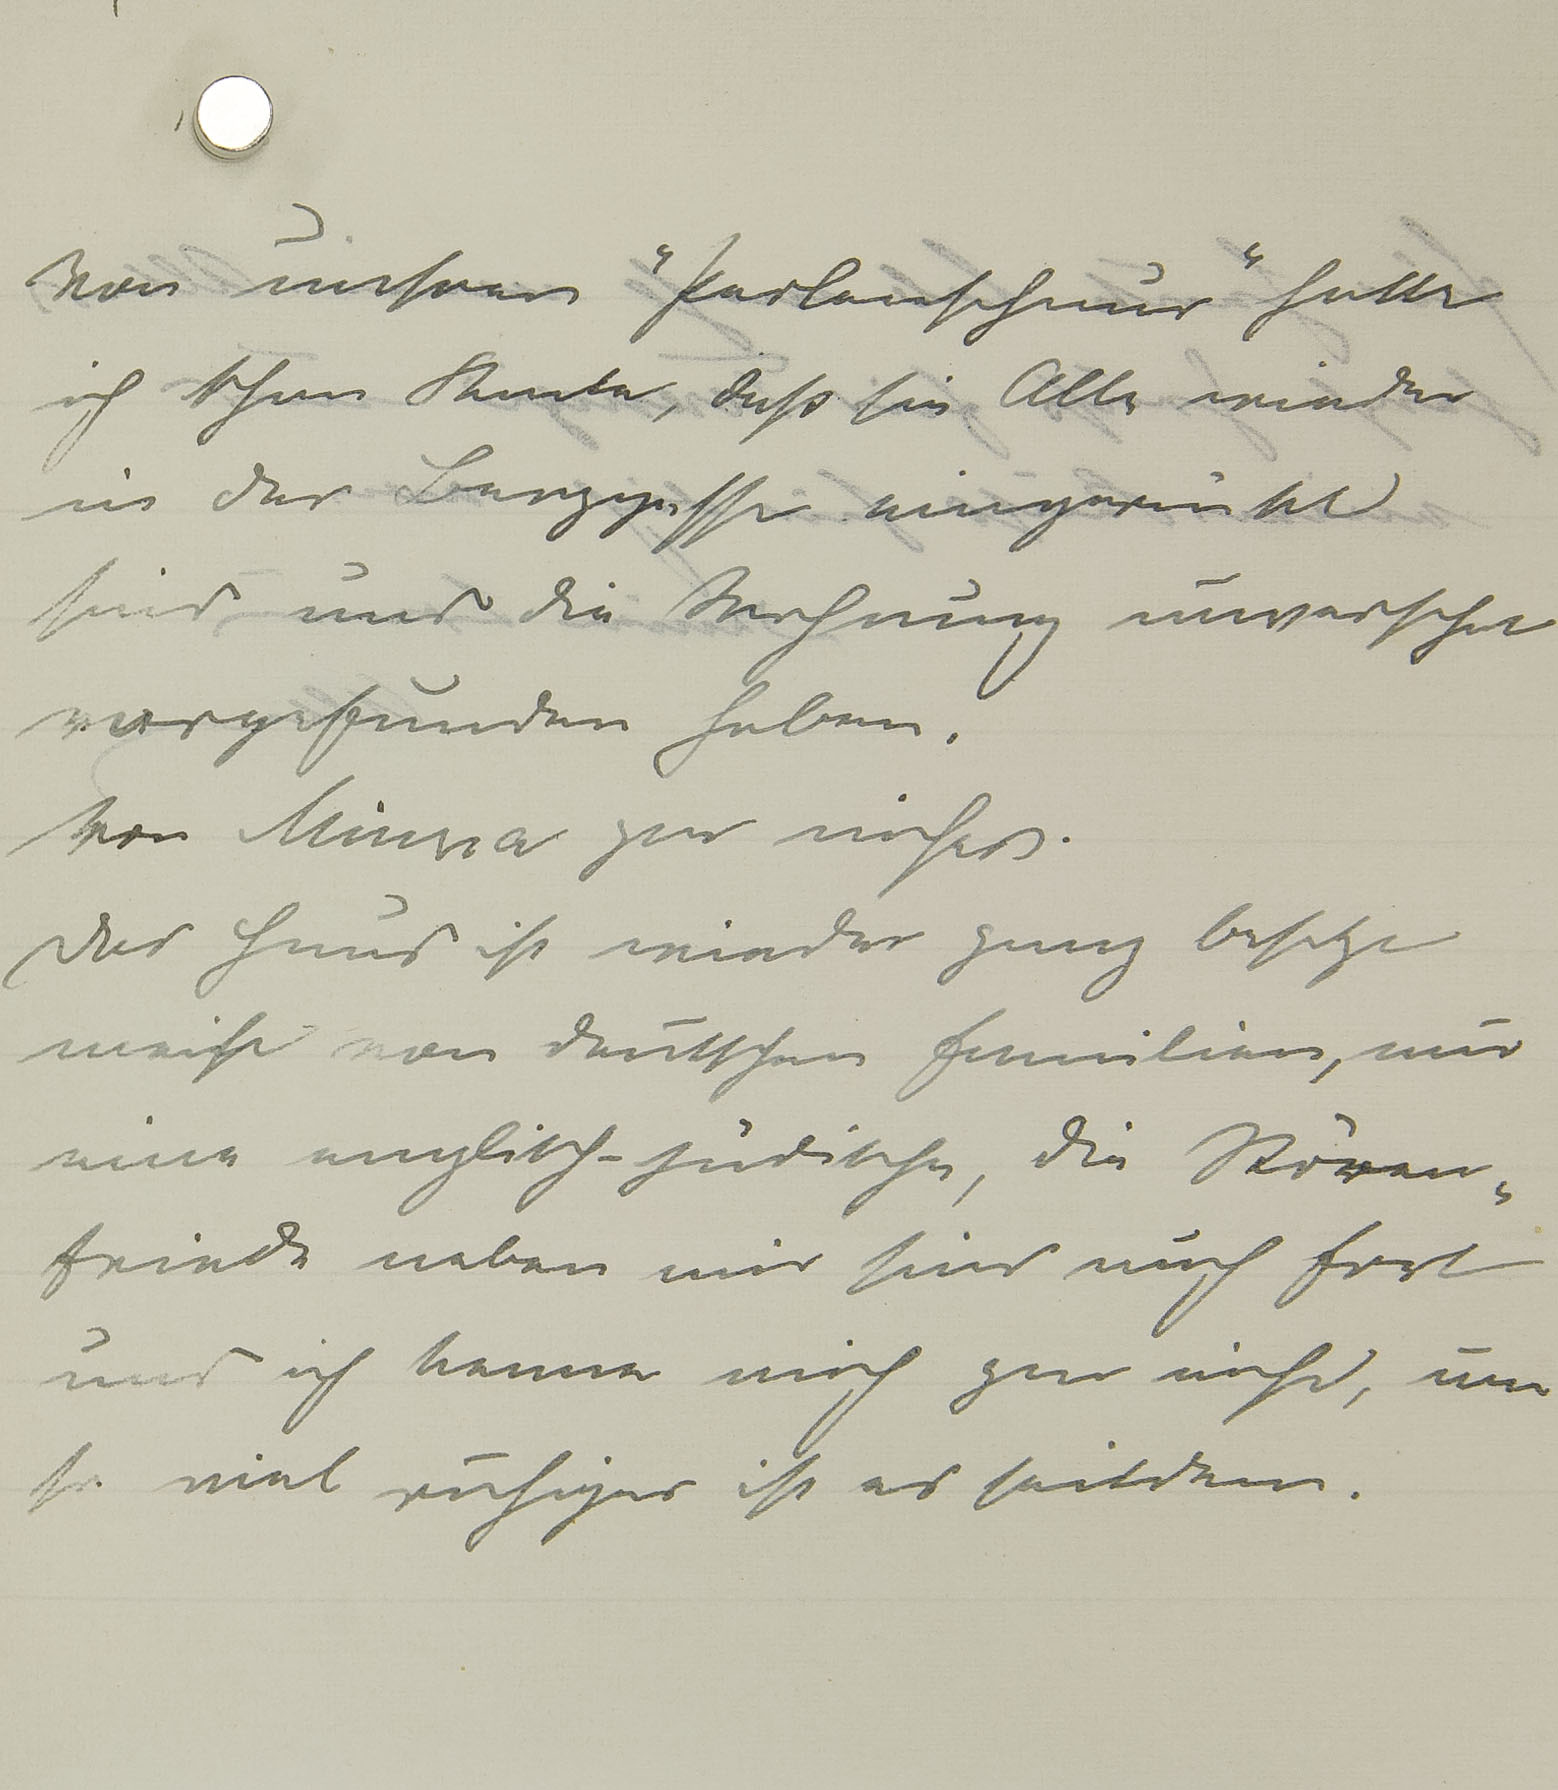 Von unserer "Perlenschnur" hatte
ich schon Kunde, daß sie Alle wieder
in der Berggasse eingerückt
sind und die Wohnung unversehrt
vorgefunden haben.
Von Minna gar nichts.
Das Haus ist wieder ganz besetzt
meist von deutschen Familien, nur
eine englisch-jüdische, die Stören„
friede neben mir sind auch fort
und ich kenne mich gar nicht, um
so viel ruhiger ist es seitdem.